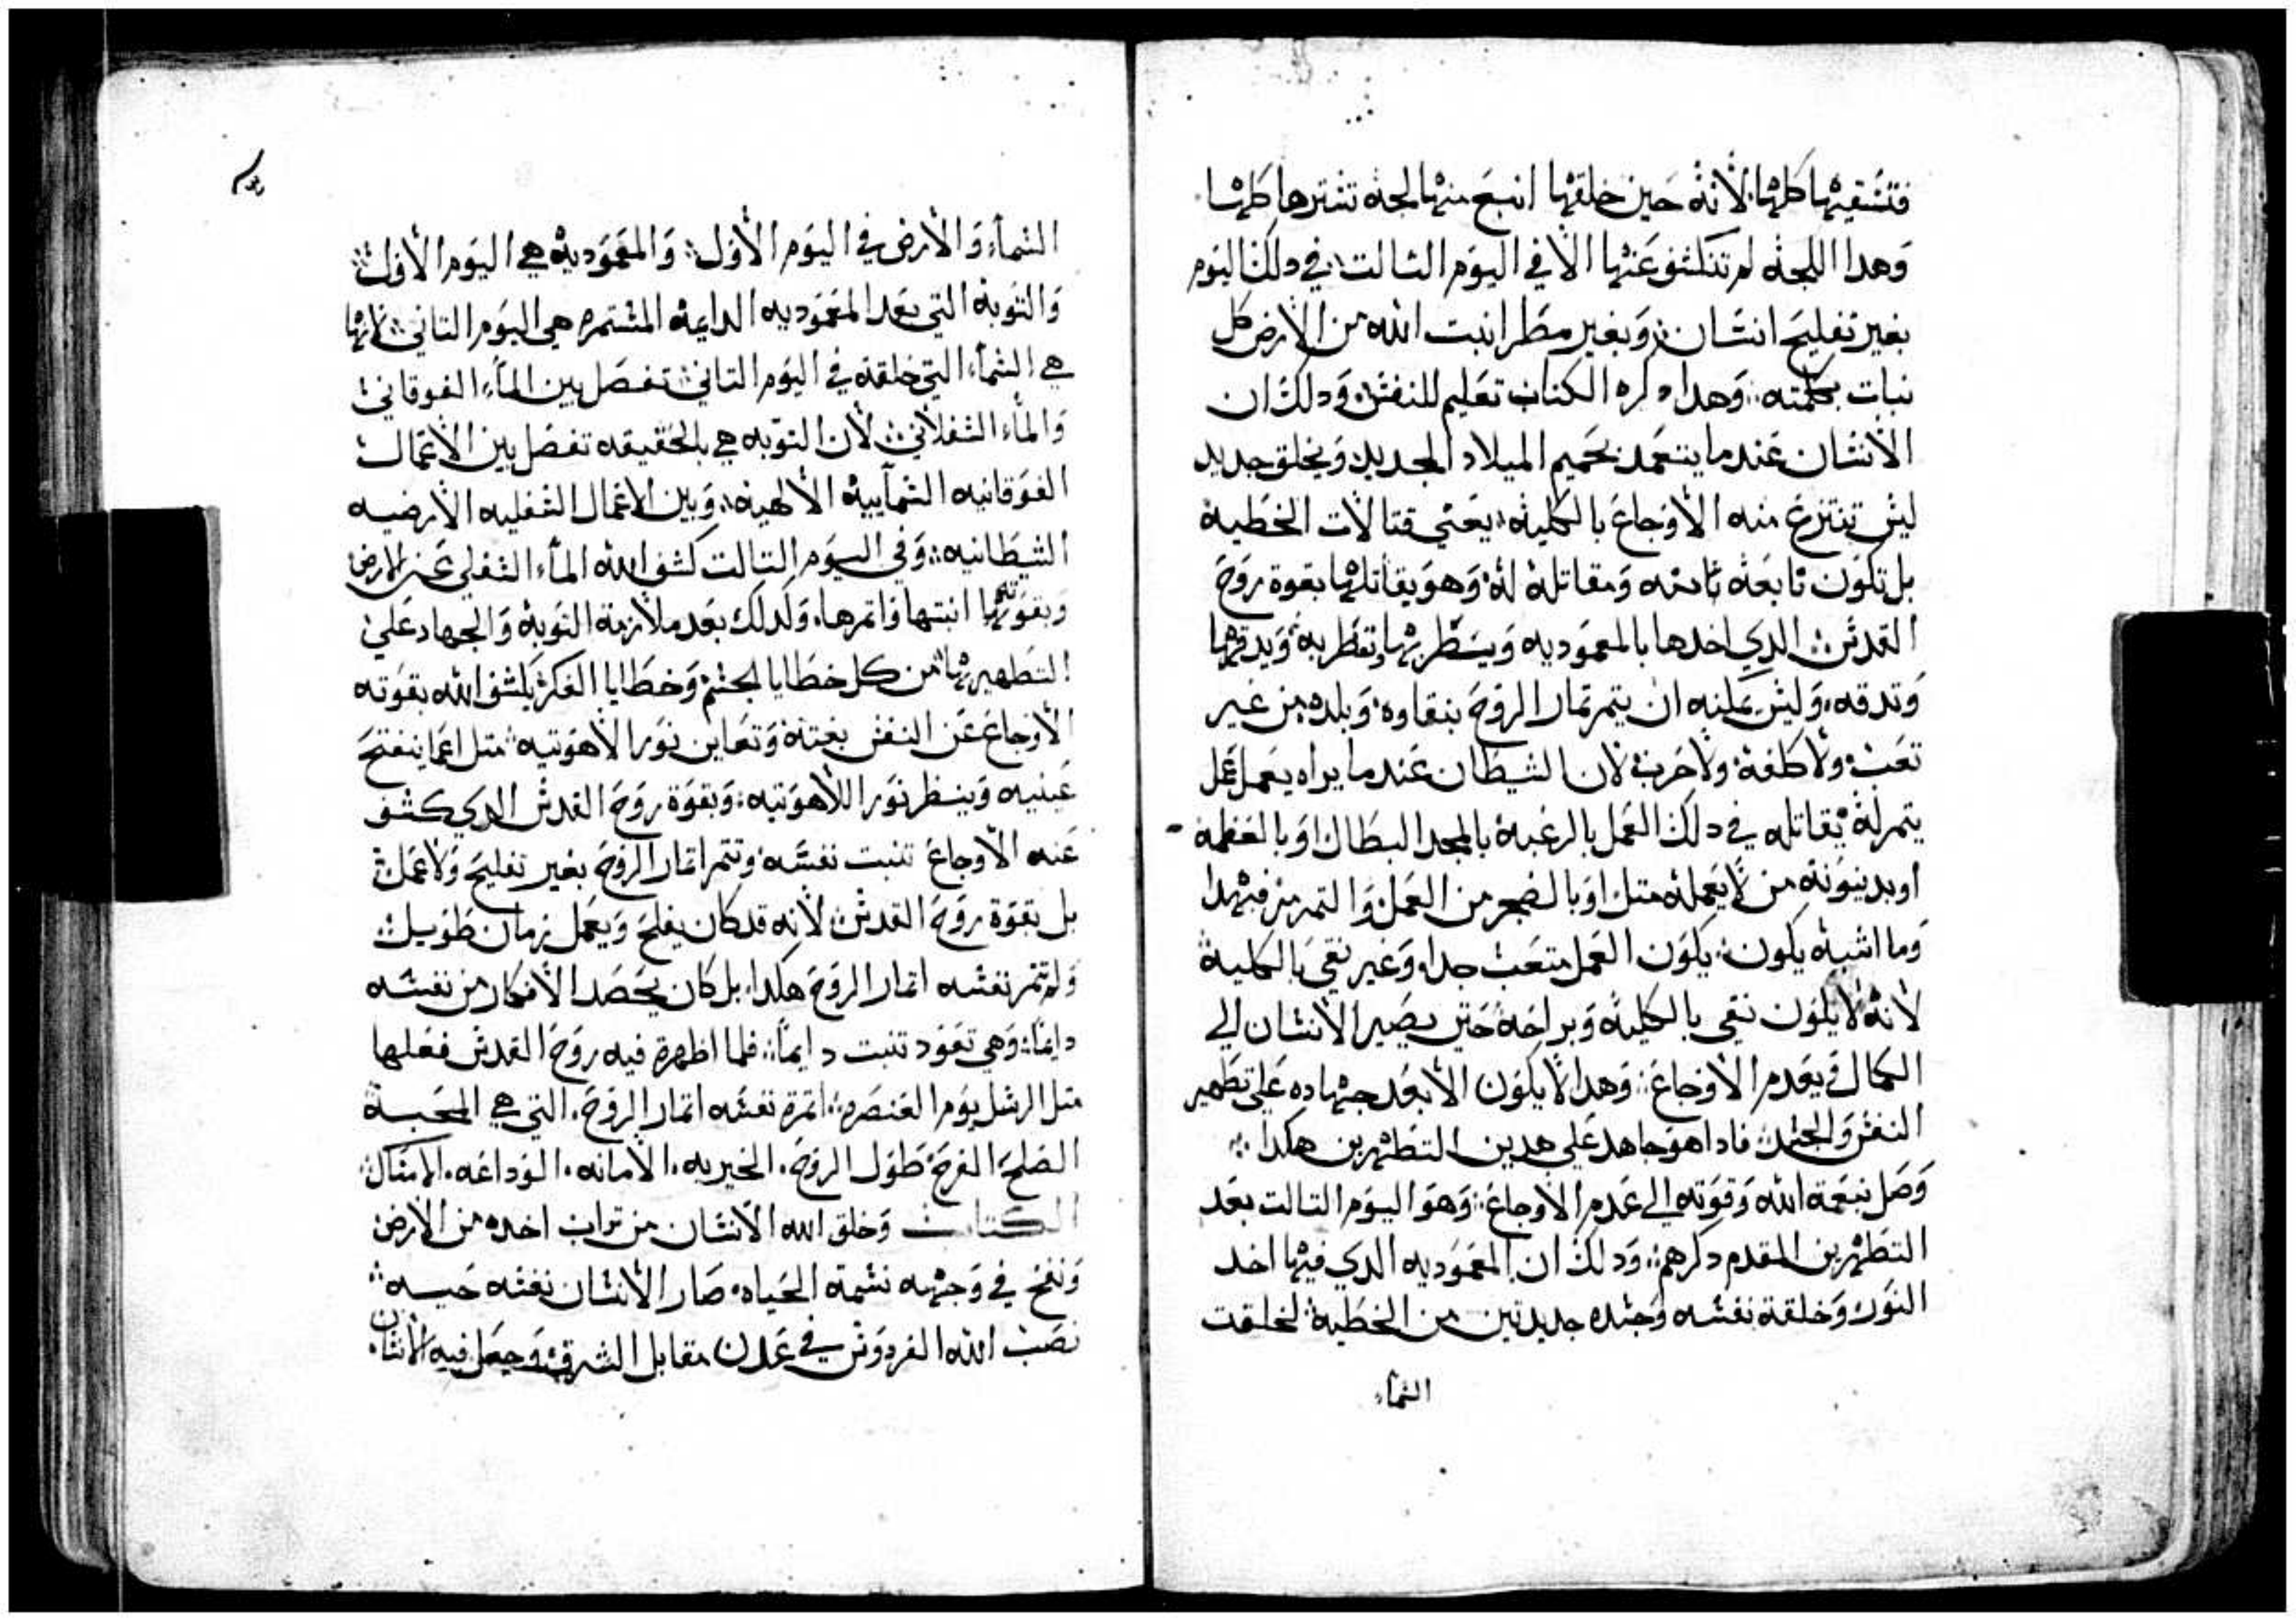 فتسقيها كلها لانه حين خلقها انبع منها لجه تسترها كلها
وهدا اللجه لم تنكشف عنها الا في اليوم التالت في دلك اليوم
بغير تفليح انسان وبغير مطر انبت الله من الارض كل
نبات بكلمته وهدا دكره الكتاب تعليم للنفس ودلك ان
الانسان عندما يتعمد بحميم الميلاد الجديد ويخلق جديد
ليس تنتزع منه الاوجاع بالكليه يعني قتالات الخطيه
بل تكون تابعه تابته ومقاتله له وهو يقاتلها بقوة روح
القدس الدي اخدها بالمعموديه ويسطر بها وتظر به ويدقها
وتدقه وليس يمكنه ان يتمر تمار الروح بنقاوه وبلده من غير
تعب ولا كلفه ولا حرب لان الشيطان عندما يراه يعمل عمل
يتمر له يقاتله في دلك العمل بالرغبه بالمجد البطال او بالعظمه
او بدينونه من لا يعمله متله او بالضجر من العمل والتمرمر فبهدا
وما اشبه يكون يكون العمل متعب جدا وغير نقي بالكليه
لانه لا يكون نقي بالكليه وبراحه حتى يصير الانسان الي
الكمال في عدم الاوجاع وهدا لا يكون الا بعد جهاده علي تطهير
النفس والجسد فادا هو جاهد علي هدين التطهرين هكدا
وصل بنعمة الله وقوته الي عدم الاوجاع وهو اليوم التالت بعد
التطهرين المقدم دكرهم ودلك ان المعموديه الدي فيها اخد
النور وخلقة نفسه وجسده جديدتين من الخطيه لخلقت
السماء
السماء والارض في اليوم الاول والمعموديه هي اليوم الاول
والتوبه التي بعد المعموديه الدايمه المستمره هي اليوم التاني لانها
هي السماء التي خلقه في اليوم التاني تفصل بين الماء الفوقاني
والماء السفلاني لان التوبه هي بالحقيقه تفصل بين الاعمال
الفوقانيه السماييه الالهيه وبين الاعمال السفليه الارضيه
الشيطانيه وفي اليوم التالت كشف الله الماء السفلي عن الارض
وبقوته انبتها واتمرها وكدلك بعد ملازمة التوبه والجهاد علي
التطهير من كل خطايا الجسم وخطايا الفكر يكشف الله بقوته
الاوجاع عن النفس بغتة وتعاين نور الاهوتيه متل اعما ينفتح
عينيه وينظر نور اللاهوتيه وبقوة روح القدس الدي كشف
عنه الاوجاع تنبت نفسه وتتمر اتمار الروح بغير تفليح ولا عمل
بل بقوة روح القدس لانه قد كان يفلح ويعمل زمان طويل
ولم تتمر نفسه اتمار الروح هكدا بل كان يحصد الافكار من نفسه
دايما وهي تعود تنبت دايما فلما اظهرة فيه روح القدس فعلها
متل الرسل يوم العنصره اتمرة نفسه اتمار الروح التي هي المحبه
الصلح الفرح طول الروح الخيريه الامانه الوداعه الامتاك
الكتاب وخلق الله الانسان من تراب اخده من الارض
ونفخ في وجهه نسمة الحياه صار الانسان نفسه حيه
نصب الله الفردوس في عدن مقابل الشرق وجعل فيه الانسان